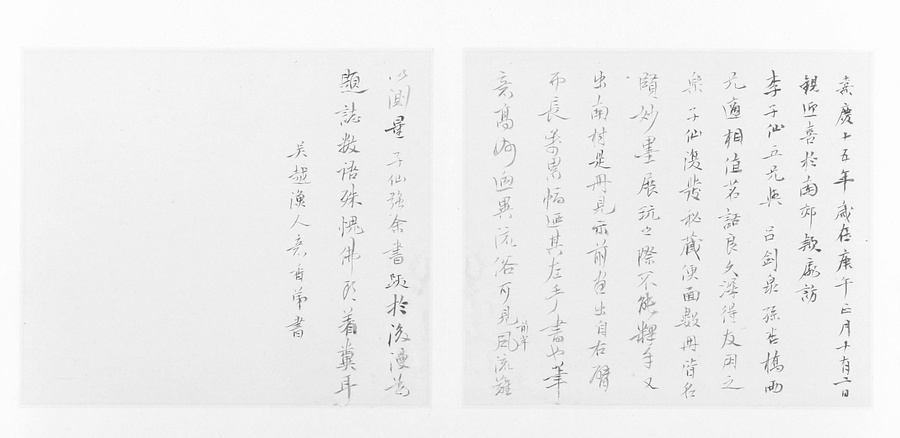 嘉慶十五年歲在庚午正月十有二日
親迎喜於南郊歎廬訪
李子仙五兄與 呂劍泉孫古橋両
兄適相值茗話良久深得友朋之
樂 子仙復發秘藏便面數冊皆名
賢妙墨展玩之際不能釋手又
出南村是冊見示前畫出自右臂
而長 累幅延其左手書也筆
意高 迥異流俗可見前輩風流雖
以測量 子仙強余書跋於後漫為
題誌數語殊愧佛頂着糞耳
吳越漁人 弟書